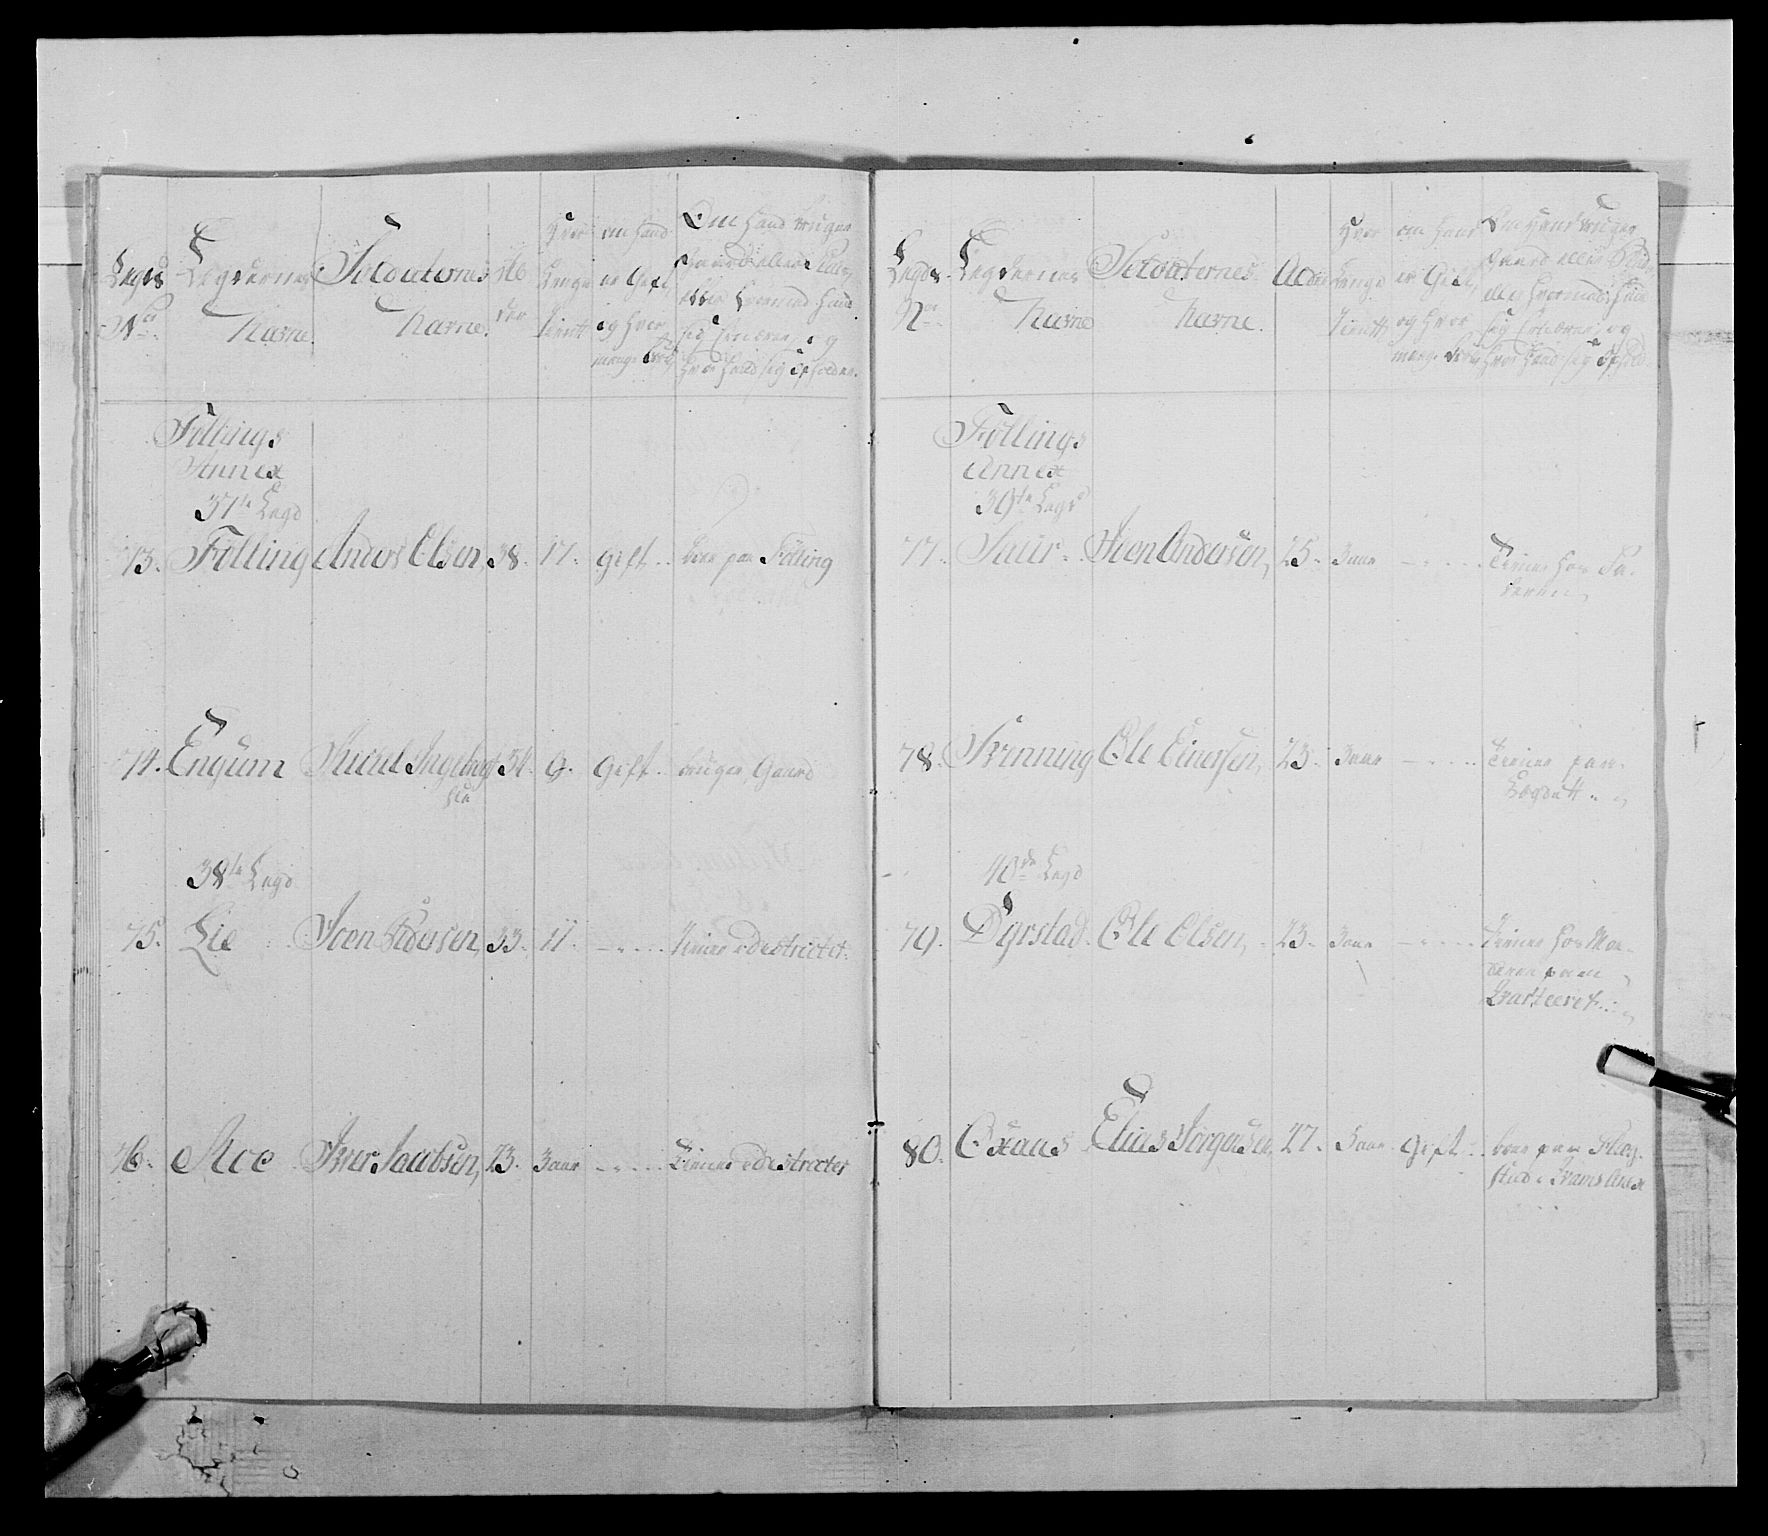 Legds
No:
Legdernes
Navne.
Soldaternes
Navne.
Al
der
Hvor
Længe
Tient
om hand
er Gift,
og hvor
mange Børn
Om hand bruger
Gaard eller Plads,
eller hvormed hand
sig Ernærer, og
hvor hand sig opholder.
Føllings
Annex
37te Legd
73. Følling Anders Olsen, 38. 17. gift.. boer paa Følling
74. Engum Ingebrigt 34. 9. Gift. bruger Gaard
38te Legd
75. Lie Joen Pedersen, 33. 11. - . . . . Tiener i Destrictet.
76. Moe Iver Jacobsen, 23. 3 aar - . . . . Tiener i Destrictet
Legds
Nor
Legdernes
Navne
Soldaternes
Navne.
Alder
Hvor
Længe
Tient,
om hand
er Gift,
og hvor
mange Børn
Om hand bruger
Gaard eller Plads,
eller hvormed hand
sig Ernærer, og
hvor hand sig ophold.
Føllings
Annex
39te Legd
77. Saur. Joen Andersen, 25. 3 aar - . . . . Tiener hos Fa-
deren
78. Qvinning Ole Einersen, 23. 3 aar - . . . . Tiener paa
40de Legd
79. Dyrstad. Ole Olsen, 23. 3 aar - . . . . Tiener hos Mo-
deren paa
Qvarteeret.
80. Oxaas Elias Jørgensen, 27. 3 aar gift.. boer paa
stad i Qvams Anex